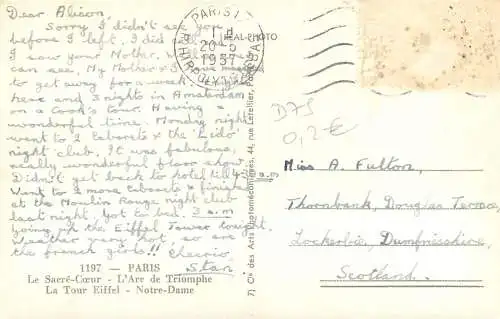 Dear Alison,
Sorry I didn't see you
before I left, I did
I saw your Mother,
can see, My Mother & I
to get away for a week
here and 3 nights in Amsterdam
on a Cook's tour. Having a
wonderful time. Monday night
went to 2 Cabarets & the "Lido"
night club. It was fabulous,
really wonderful floor show
Didn't get back to hotel till 4.30 a.m
Went to 2 more cabarets & finished
at the Moulin Rouge night club
last night, Got to bed 3 a.m
Going up the Eiffel Tower tonight.
Weather very hot, so are
the french girls!! Cheerio
Stan.
1197 — PARIS
Le Sacré-Cœur - L'Arc de Triomphe
La Tour Eiffel - Notre-Dame
REAL-PHOTO
PARIS I
1957
7) Cie des Arts Photomécaniques, 44, rue Letellier, Paris
D75
0,2€
Miss A. Fulton,
Thornbank, Douglas Terrace,
Lockerbie, Dumfriesshire,
Scotland.